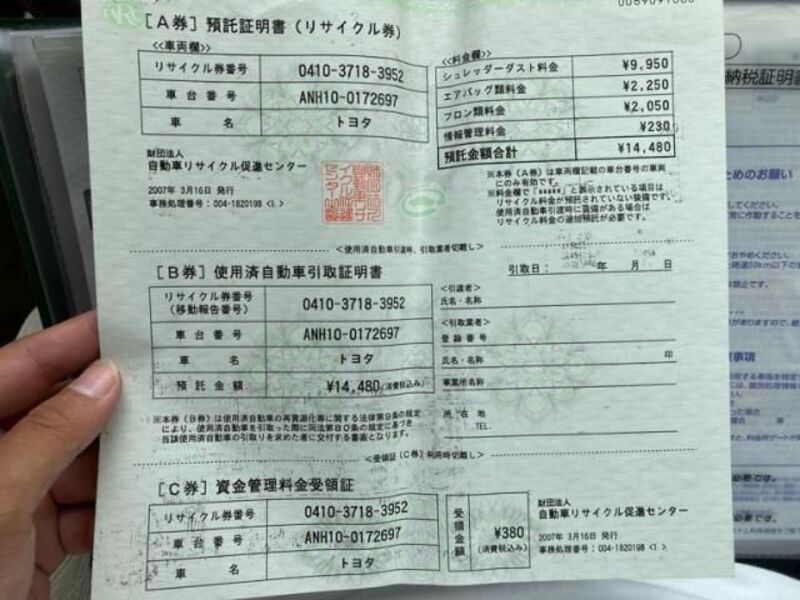 [A券] 預託証明書 (リサイクル券)
≪車両欄≫
リサイクル券番号 0410-3718-3952
車台番号 ANH10-0172697
車名 トヨタ
財団法人
自動車リサイクル促進センター
2007年 3月16日 発行
事務処理番号:004-1820198 <1>
≪料金欄≫
シュレッダーダスト料金 ¥9,950
エアバッグ類料金 ¥2,250
フロン類料金 ¥2,050
情報管理料金 ¥230
預託金額合計 ¥14,480
※本券(A券)は車両欄記載の車台番号の車両
にのみ有効です。
※料金欄で「*****」と表示されている項目は
リサイクル料金が預託されていない装備です。
使用済自動車引渡時に装備がある場合は
リサイクル料金の追加預託が必要です。
<使用済自動車引渡時、引取業者切離し>
[B券] 使用済自動車引取証明書
引取日: 年 月 日
リサイクル券番号
(移動報告番号) 0410-3718-3952
車台番号 ANH10-0172697
車名 トヨタ
預託金額 ¥14,480(消費税込み)
<引渡者>
氏名・名称
<引取業者>
登録番号
氏名・名称 印
事業所名称
所在地
TEL.
※本券(B券)は使用済自動車の再資源化等に関する法律第9条の規定
により、使用済自動車を引取った際に同法第80条の規定に基づき
当該使用済自動車の引取りを求めた者に交付する書面となります。
<受領証(C券)利用時切離し>
[C券] 資金管理料金受領証
リサイクル券番号 0410-3718-3952
車台番号 ANH10-0172697
車名 トヨタ
受領金額 ¥380
(消費税込み)
財団法人
自動車リサイクル促進センター
2007年 3月16日 発行
事務処理番号:004-1820198 <1>
納税証明書
ためのお願い